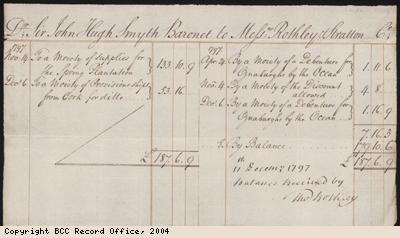 Dr. Sir John Hugh Smyth Baronet to Messrs. Rothley & Stratton Cr.
1797
Novr. 4. To a Moiety of Supplies for
the Spring Plantation } 133.10.9
Decr. 6 To a Moiety of Provisions shipt
from Cork for ditto } 53.16
£187.6.9
1797.
Apr. 4. By a Moiety of a Debenture for
Osnaburghs by the Ocean } 1.11.6
Novr. 4. By a Moiety of the Discount
allowed } 4.8.
Decr. 6. By a Moiety of a Debenture for
Osnaburghs by the Ocean } 1.16.9
7.16.3
By Balance 179.10.6
£187.6.9
11 Decemr. 1797
Balance received by
Copyright BCC Record Office, 2004